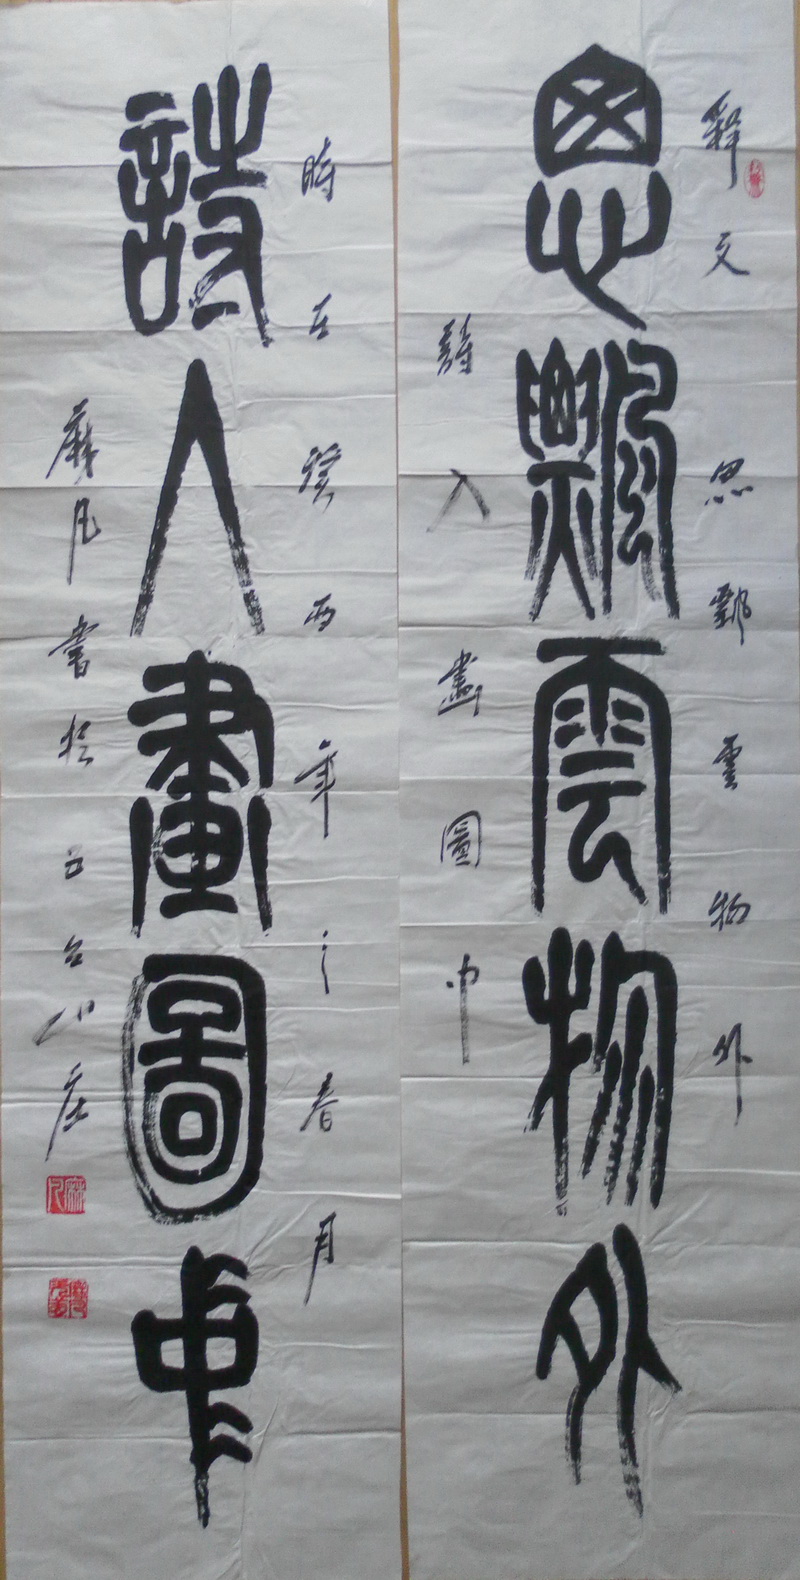 释文 思飄雲物外
思飄雲物外
詩入畫圖中
時在癸酉年之春月
詩入畫圖中
麻凡書於